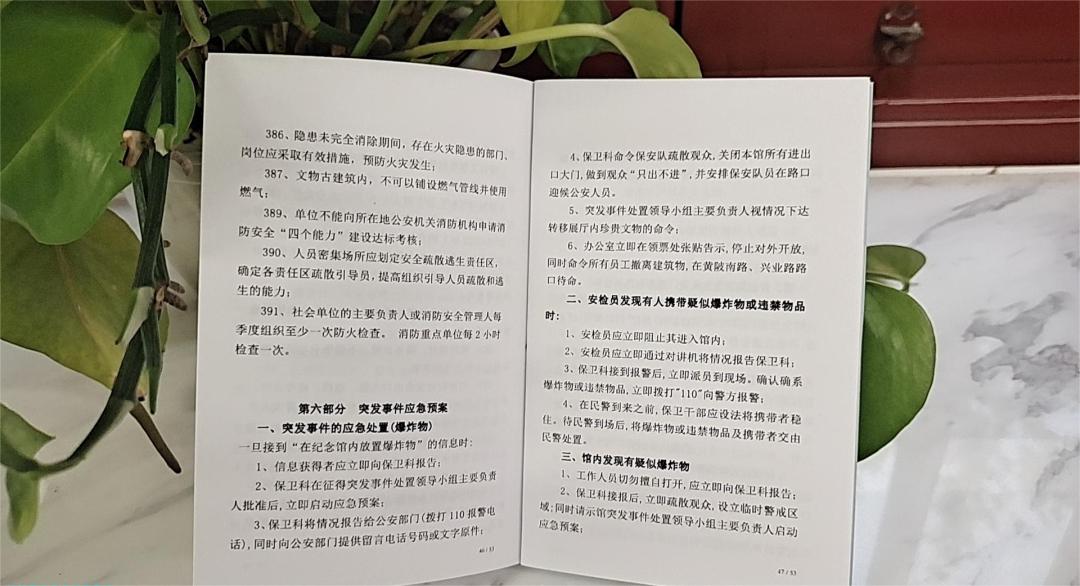 386、隐患未完全消除期间，存在火灾隐患的部门、
岗位应采取有效措施，预防火灾发生；
387、文物古建筑内，不可以铺设燃气管线并使用
燃气；
389、单位不能向所在地公安机关消防机构申请消
防安全“四个能力”建设达标考核；
390、人员密集场所应划定安全疏散逃生责任区，
确定各责任区疏散引导员，提高组织引导人员疏散和逃
生的能力；
391、社会单位的主要负责人或消防安全管理人每
季度组织至少一次防火检查。 消防重点单位每2小时
检查一次。
第六部分 突发事件应急预案
一、突发事件的应急处置(爆炸物)
一旦接到“在纪念馆内放置爆炸物”的信息时：
1、信息获得者应立即向保卫科报告；
2、保卫科在征得突发事件处置领导小组主要负责
人批准后，立即启动应急预案；
3、保卫科将情况报告给公安部门(拨打110报警电
话)，同时向公安部门提供留言电话号码或文字原件；
46 / 53
4、保卫科命令保安队疏散观众，关闭本馆所有进出
口大门，做到观众“只出不进”，并安排保安队员在路口
迎候公安人员。
5、突发事件处置领导小组主要负责人视情况下达
转移展厅内珍贵文物的命令；
6、办公室立即在领票处张贴告示，停止对外开放，
同时命令所有员工撤离建筑物，在黄陂南路、兴业路路
口待命。
二、安检员发现有人携带疑似爆炸物或违禁物品
时：
1、安检员应立即阻止其进入馆内；
2、安检员应立即通过对讲机将情况报告保卫科；
3、保卫科接到报警后，立即派员到现场。确认确系
爆炸物或违禁物品，立即拨打"110"向警方报警；
4、在民警到来之前，保卫干部应设法将携带者稳
住。待民警到场后，将爆炸物或违禁物品及携带者交由
民警处置。
三、馆内发现有疑似爆炸物
1、工作人员切勿擅自打开，应立即向保卫科报告；
2、保卫科接报后，立即疏散观众，设立临时警戒区
域；同时请示馆突发事件处置领导小组主要负责人启动
应急预案；
47 / 53